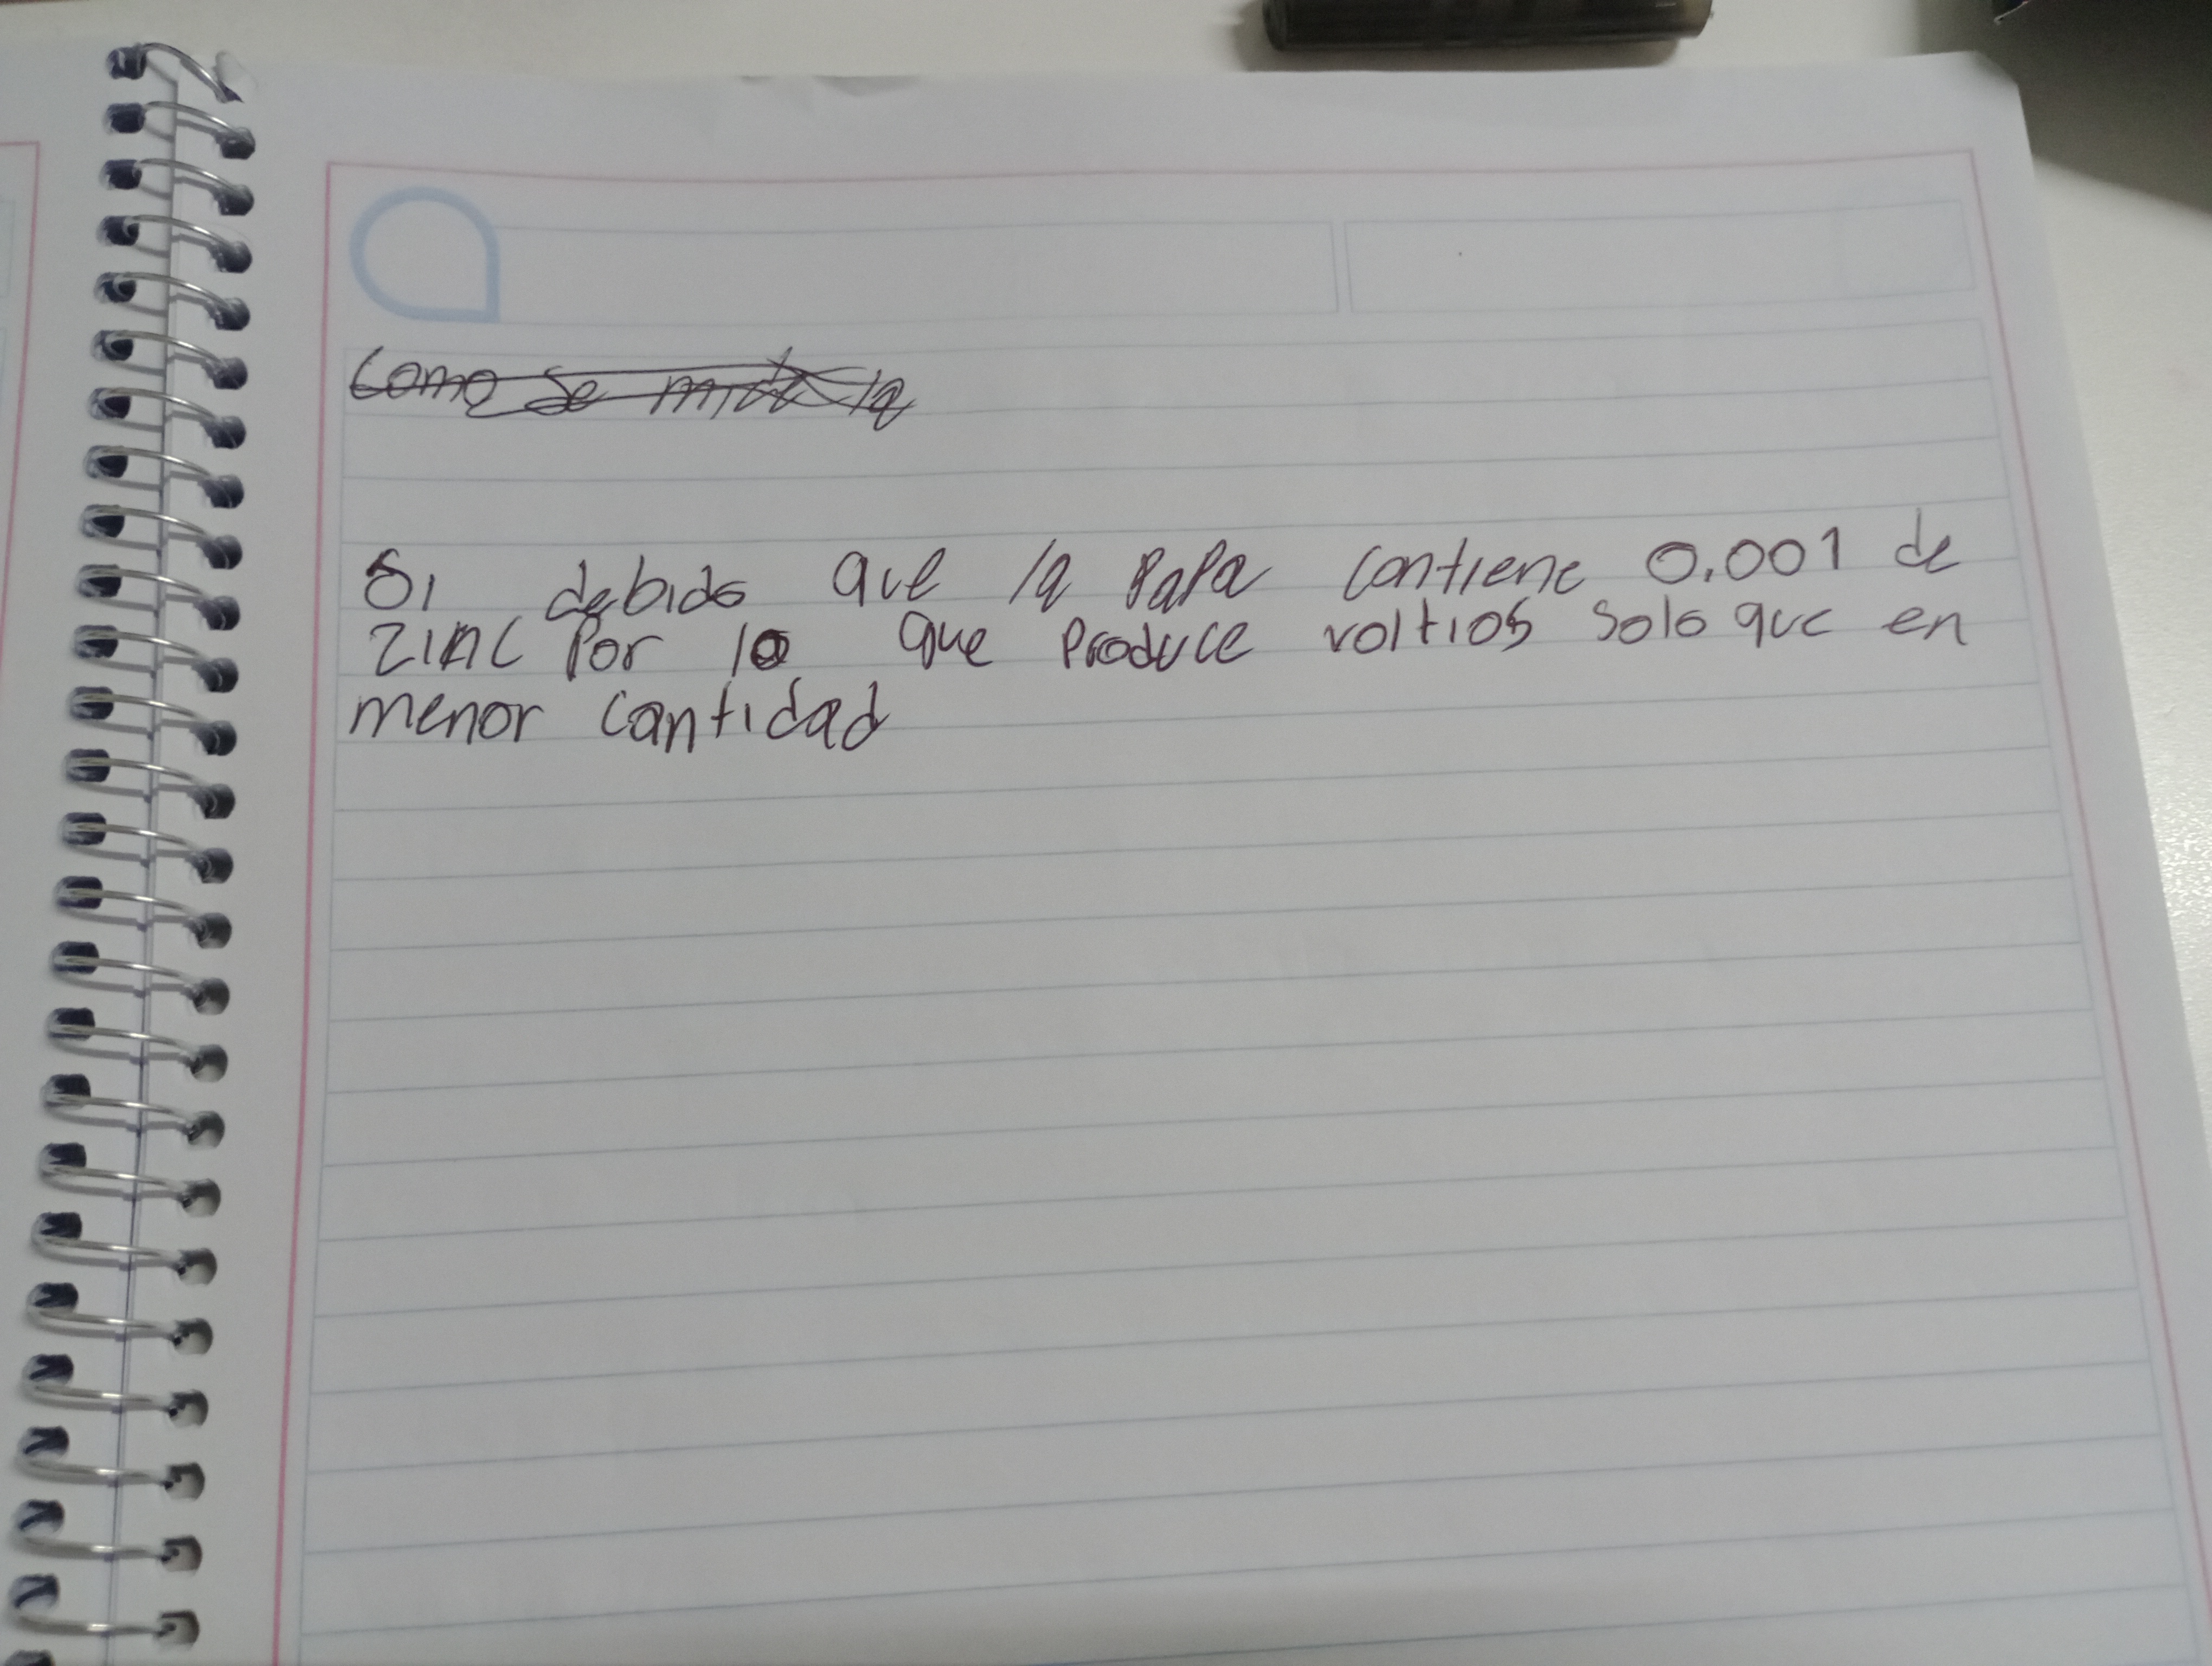 Como se mide la
Si debido que la papa contiene 0.001 de
zinc por lo que produce voltios solo que en
menor cantidad